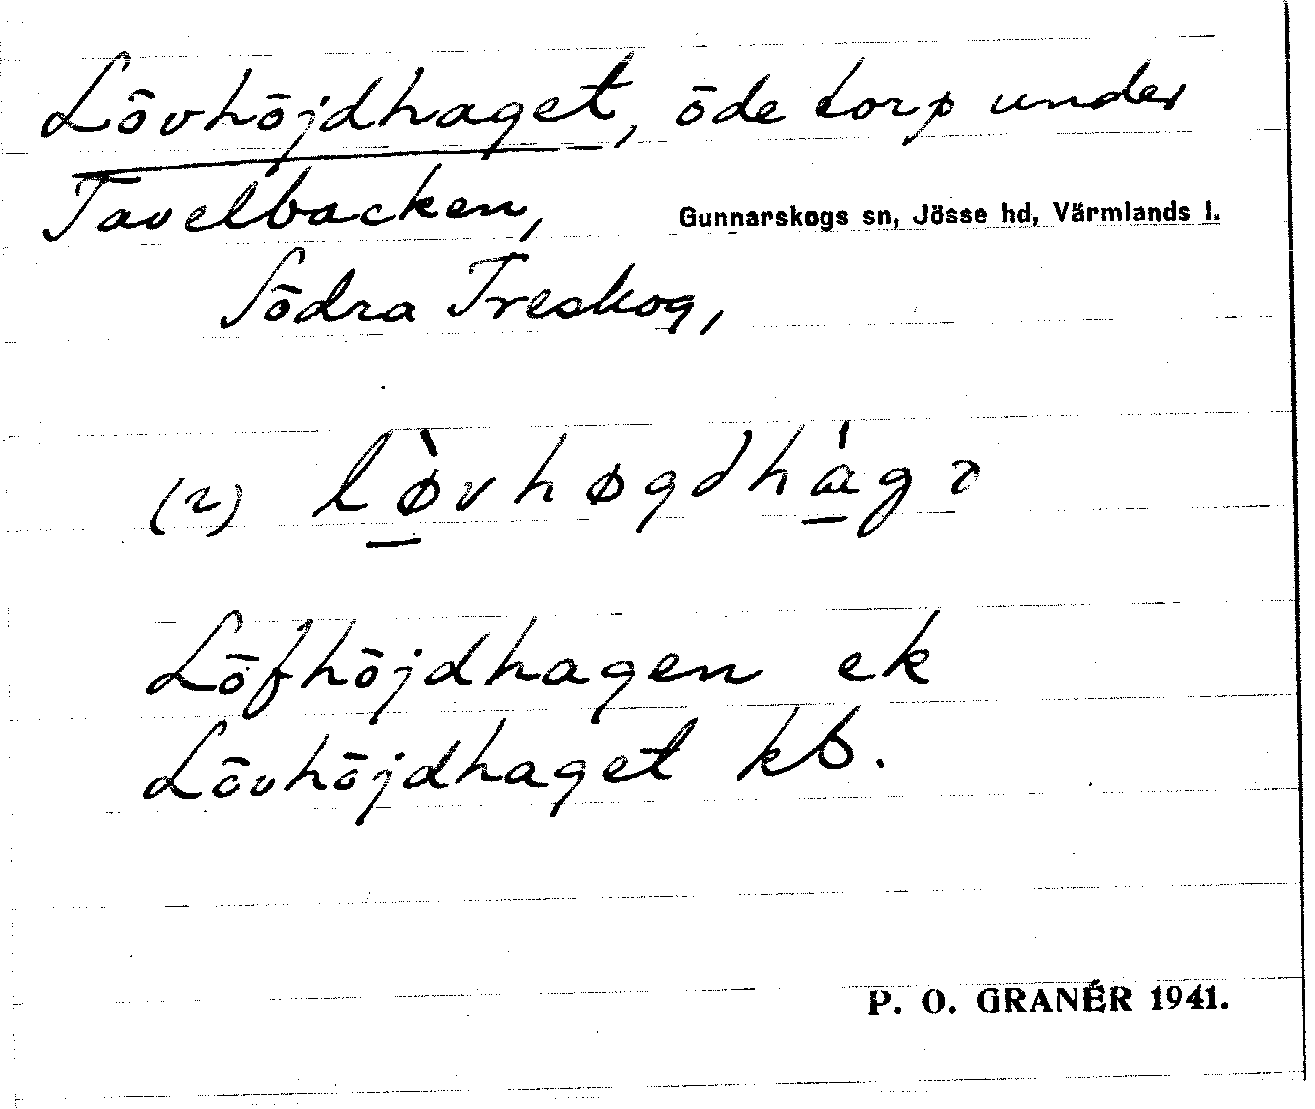 Lövhöjdhaget, öde torp under
Tavelbacken,
Gunnarskogs sn, Jösse hd, Värmlands l.
Södra Treskog,
(2) lø̀vhøgdhágə
Löfhöjdhagen ek
Lövhöjdhaget kb.
P. O. GRANÉR 1941.